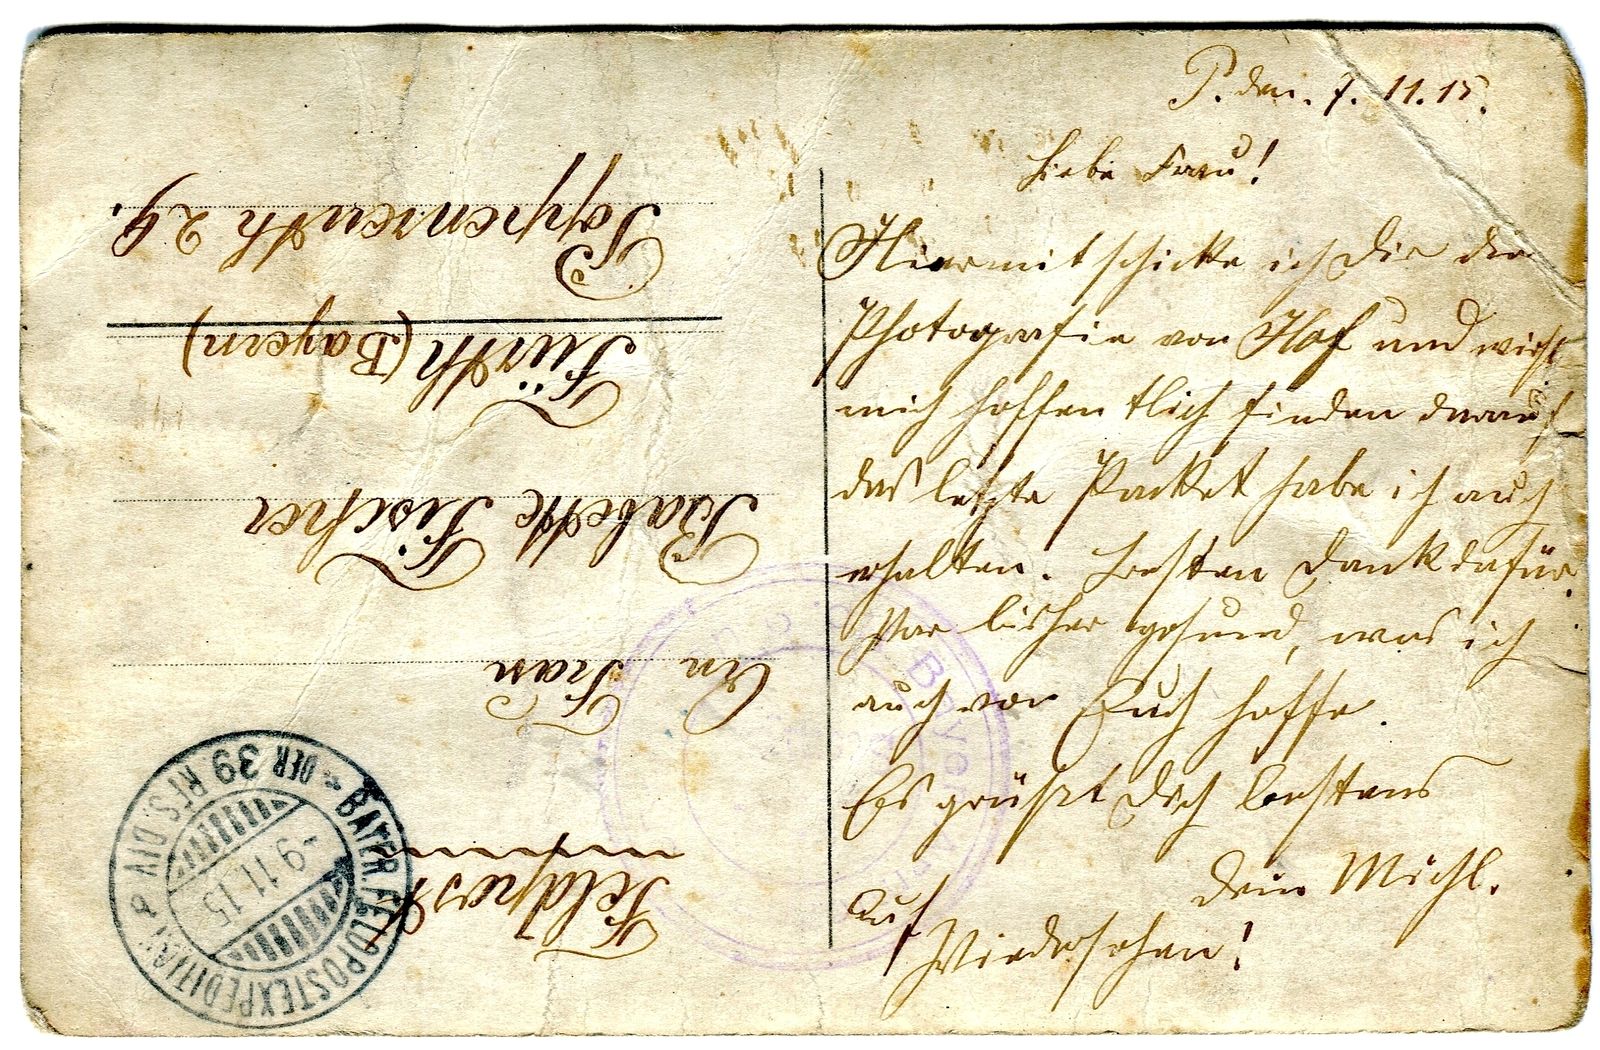 P. den. 7. 11. 15.
Liebe Frau!
Hiermit schicke ich Dir die
Photografie von Hof und wirst
mich hoffentlich finden darauf
das letzte Packet habe ich auch
erhalten. besten Dank dafür.
bisher gesund, was ich
auch von Euch hoffe.
Es grüßt Dich bestens
dein Michl.
Auf
Wiedersehen!
Feldpost
An Frau
Babette Fischer
Fürth (Bayern)
Poppenreuth 29.
BAYER. FELDPOSTEXPEDITION
DER 39 RES. DIV.
-9.11.15